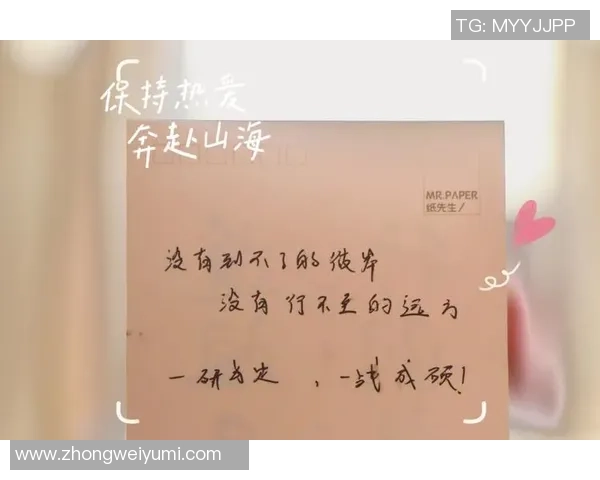 TG: MYYJJPP
保持热爱
奔赴山海
MR.PAPER
纸先生/
没有到不了的彼岸
没有行不至的远方
一研为定，一战成硕！
www.zhongweiyumi.com